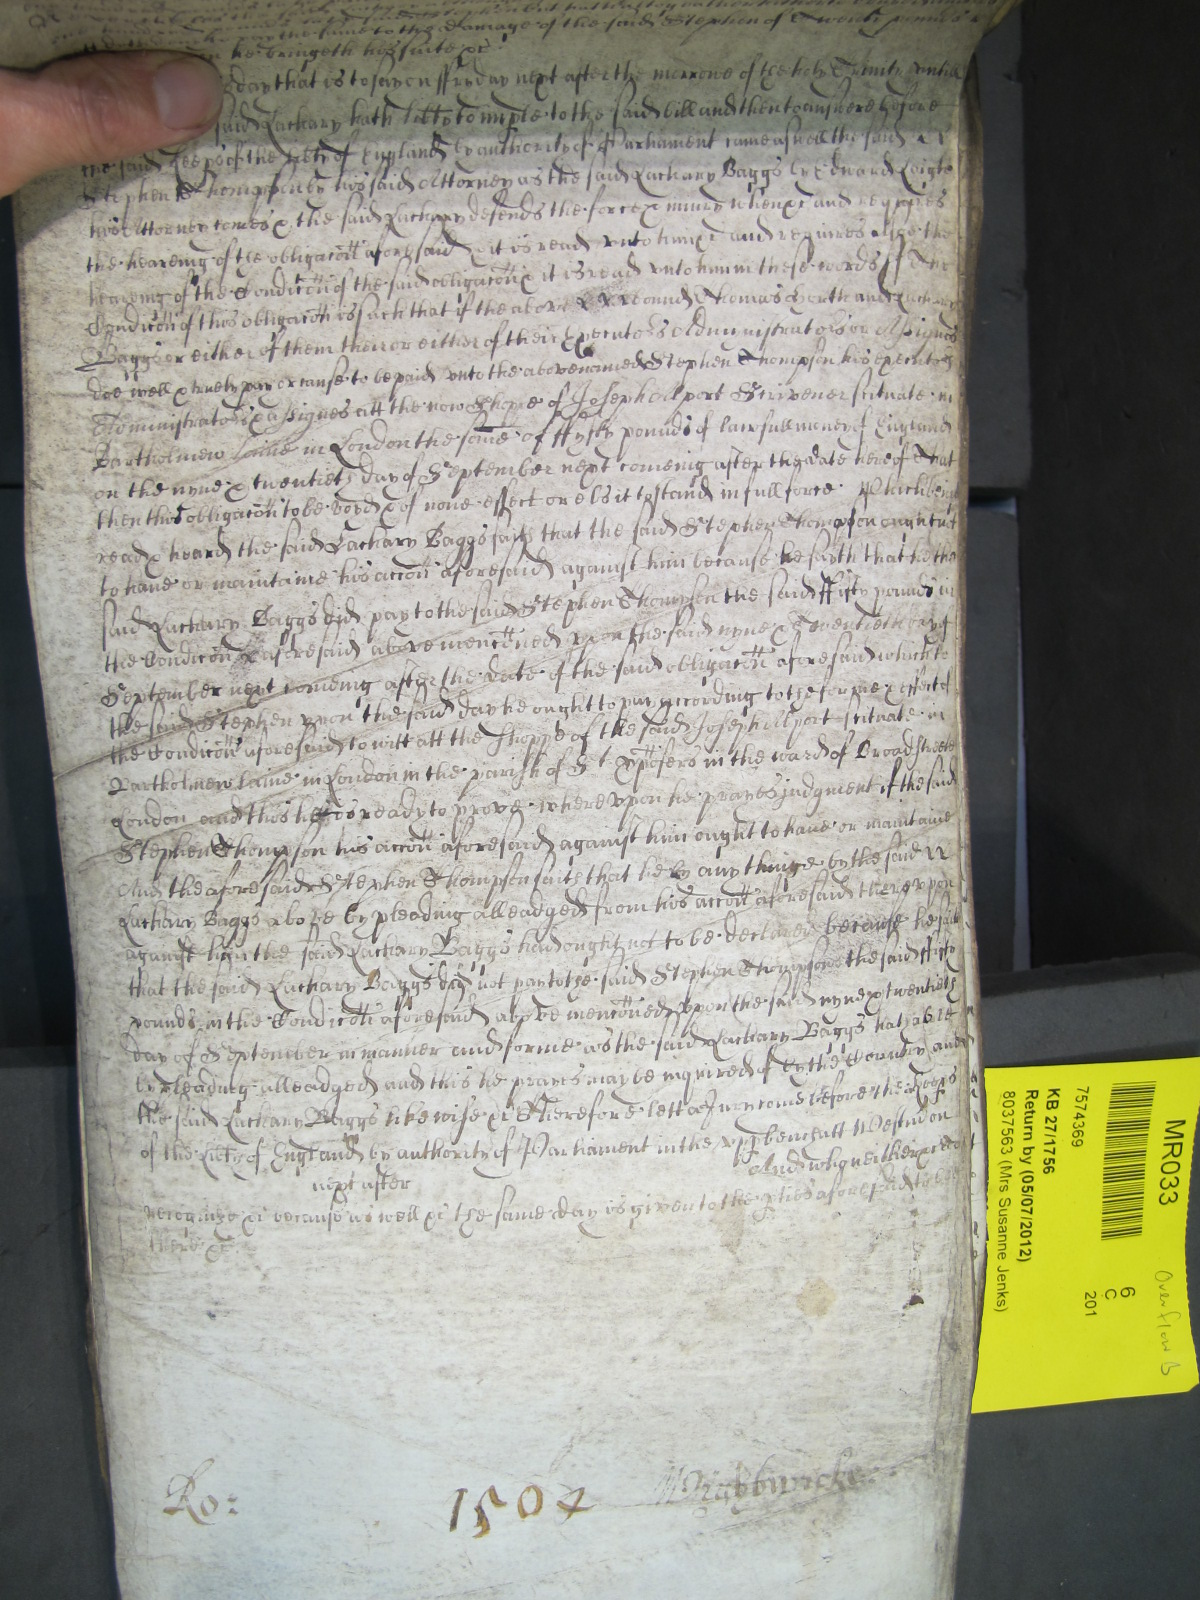 he may the same to the damage of the said Stephen of Twenty pounds
he bringeth his suite &c
day that is to say on ffryday next after the morrowe of the holy Trinity untill
said Zachary hath l̃re to imple to the said bill and then to answere before
the said Keeps of the liẽty of England by authority of Parliament came aswell the said
Stephen Thompson by his said Attorney as the said Zachary Baggs by Edward
his Attorney comes & the said Zachary defends the force & iniury when &c and requires
the heareing of the obligacõn aforesaid & it is read unto him &c and requires alsoe the
heareing of the Condicõn of the said obligacõn & it is read unto him in these words ss The
Condicõn of this obligacõn is such that if the above bound Thomas and Zachary
Baggs or either of them their or either of their Executors Administrators or Assignes
doe well & truely pay or cause to be paid unto the abovenamed Stephen Thompson his executors
Administrators & assignes att the now Shopp of Joseph Alport Scrivener scituate in
Bartholmew Laine in London the some of ffyfty pounds of lawfull money of England
on the nyne & twentieth day of September next comeing after the date hereof That
then this obligacõn to be voyd & of none effect or els it to stand in full force Which being
read & heard the said Zachary Baggs saith that the said Stephen Thompson ought not
to have or maintaine his accõn aforesaid against him because he saith that he the
said Zachary Baggs did pay to the said Stephen Thompson the said ffifty pounds in
the Condicõn aforesaid above mencõned upon the said nyne & Twentieth day
September next comeing after the date of the said obligacõn aforesaid which to
the said Stephen upon the said day he ought to pay according to the forme & effect of
the Condicõn aforesaid to witt att the Shopp of the said Joseph Alport scituate in
Bartholmew Laine in London in the parish of St Xp̃ofers in the ward of Broadstreete
London and this he is ready to prove whereupon he prayes judgment if the said
Stephen Thompson his accõn aforesaid against him ought to have or maintaine
And the aforesaid Stephen Thompson saith that he by any thinge by the said
Zachary Baggs above by pleading alleadged from his accõn aforesaid thereupon
against him the said Zachary Baggs had ought not to be declared because he saith
that the said Zachary Baggs did not pay to the said Stephen Thompson the said ffifty
pounds in the Condicõn aforesaid above mencõned upon the said nyne & twentieth
day of September in manner and forme as the said Zachary Baggs hath above
by pleading alleadged and this he prayes may be inquired of by the Country and
the said Zachary Baggs likewise &c Therefore lett a Jury come before the Keeps
of the liẽty of England by authority of Parliament in the upp bench att Westm on
next after And who neither &c
recognize &c because as well &c the same day is given to the p̃ties aforesaid
there &c
Ro: 1504
MR033
7574369
KB 27/1756
Return by (05/07/2012)
8037563 (Mrs Susanne Jenks)
6
C
201
Overflow B